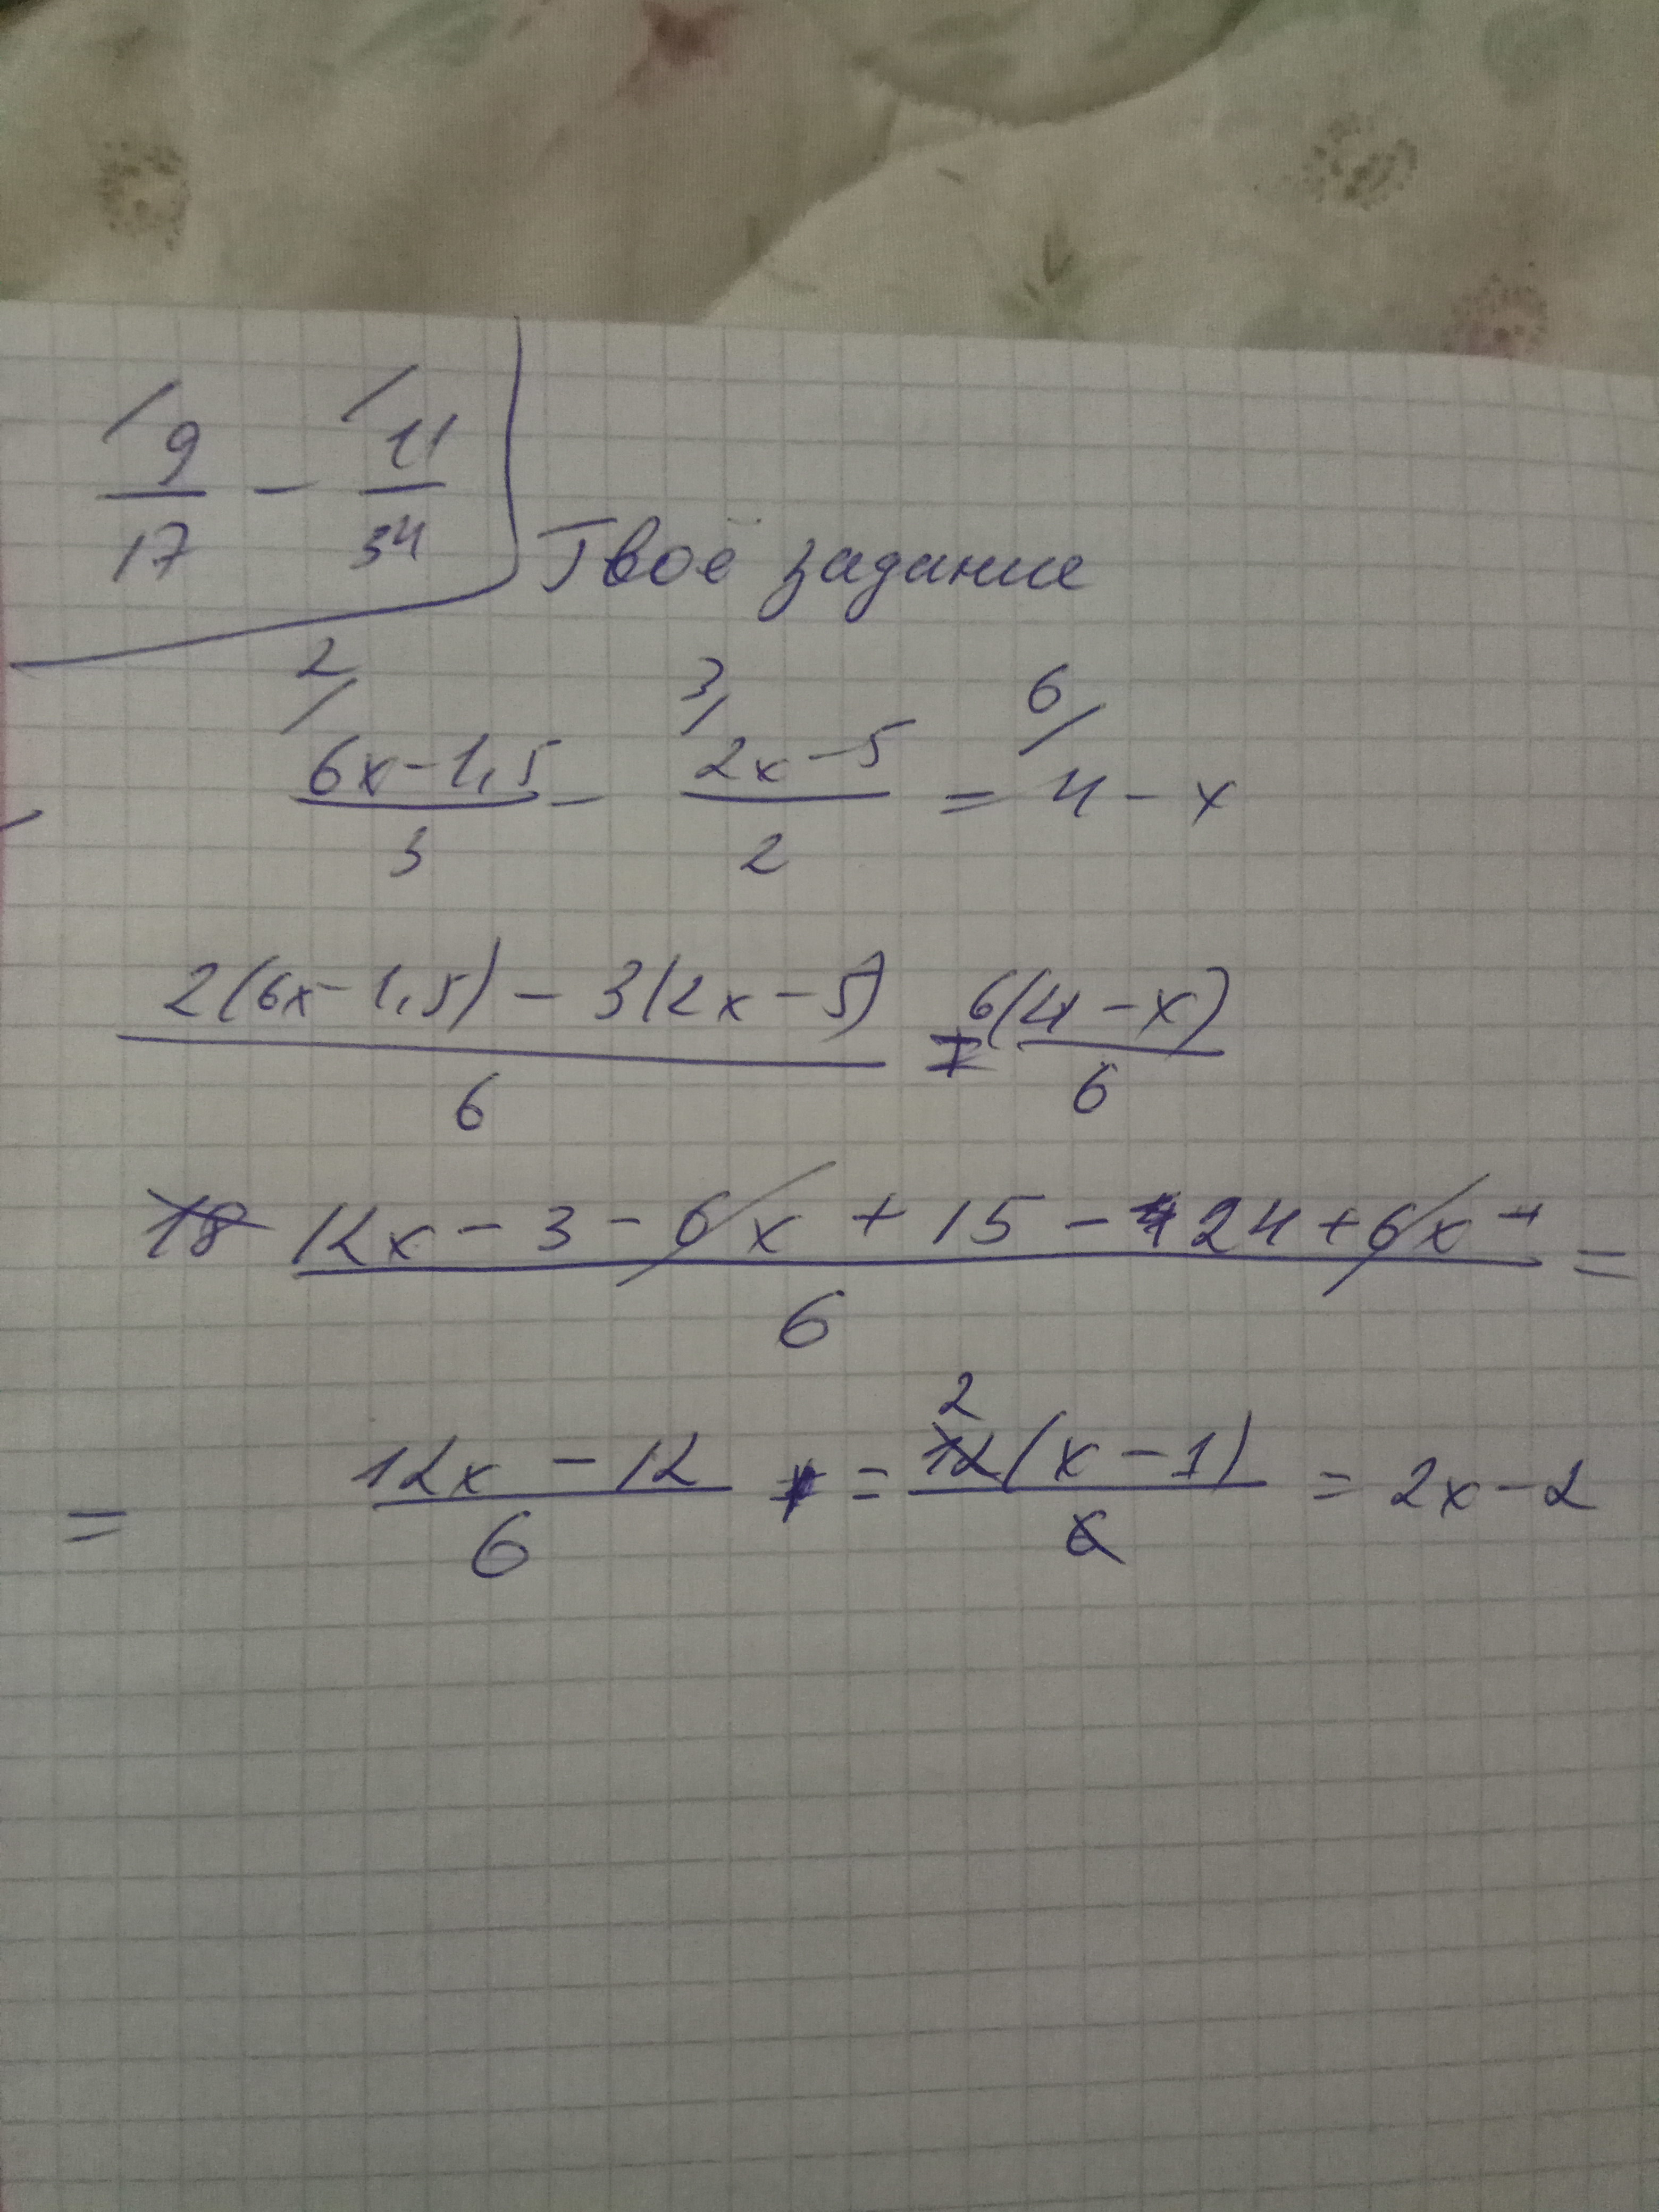 9/17 - 11/34
Твоё задание
2/ 3/ 6/
(6x-1,5)/3 - (2x-5)/2 = 4-x
(2(6x-1,5)-3(2x-5))/6 = 6(4-x)/6
18 (12x-3-6x+15-24+6x)/6 =
= (12x-12)/6 = 2 12(x-1)/6 = 2x-2